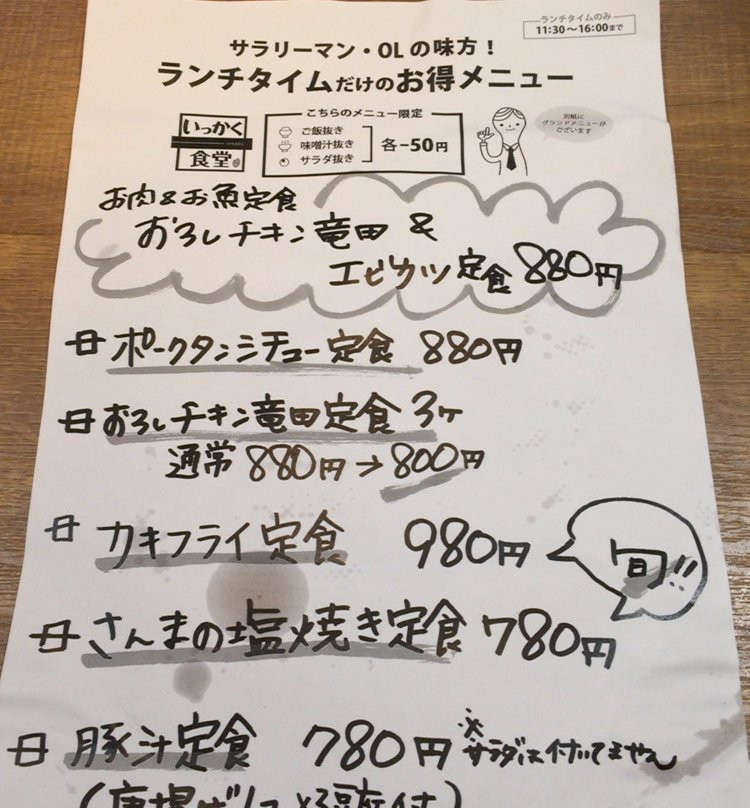 ランチタイムのみ
11:30～16:00まで
サラリーマン・OLの味方！
ランチタイムだけのお得メニュー
いっかく
食堂
こちらのメニュー限定
ご飯抜き
味噌汁抜き
サラダ抜き
各-50円
別紙に
グランドメニューが
ございます
お肉&お魚定食
おろしチキン竜田 &
エビカツ定食 880円
ポークタンシチュー定食 880円
おろしチキン竜田定食 3ヶ
通常 880円→800円
カキフライ定食 980円
旬!!
さんまの塩焼き定食 780円
豚汁定食 780円 ※サラダは付いてません